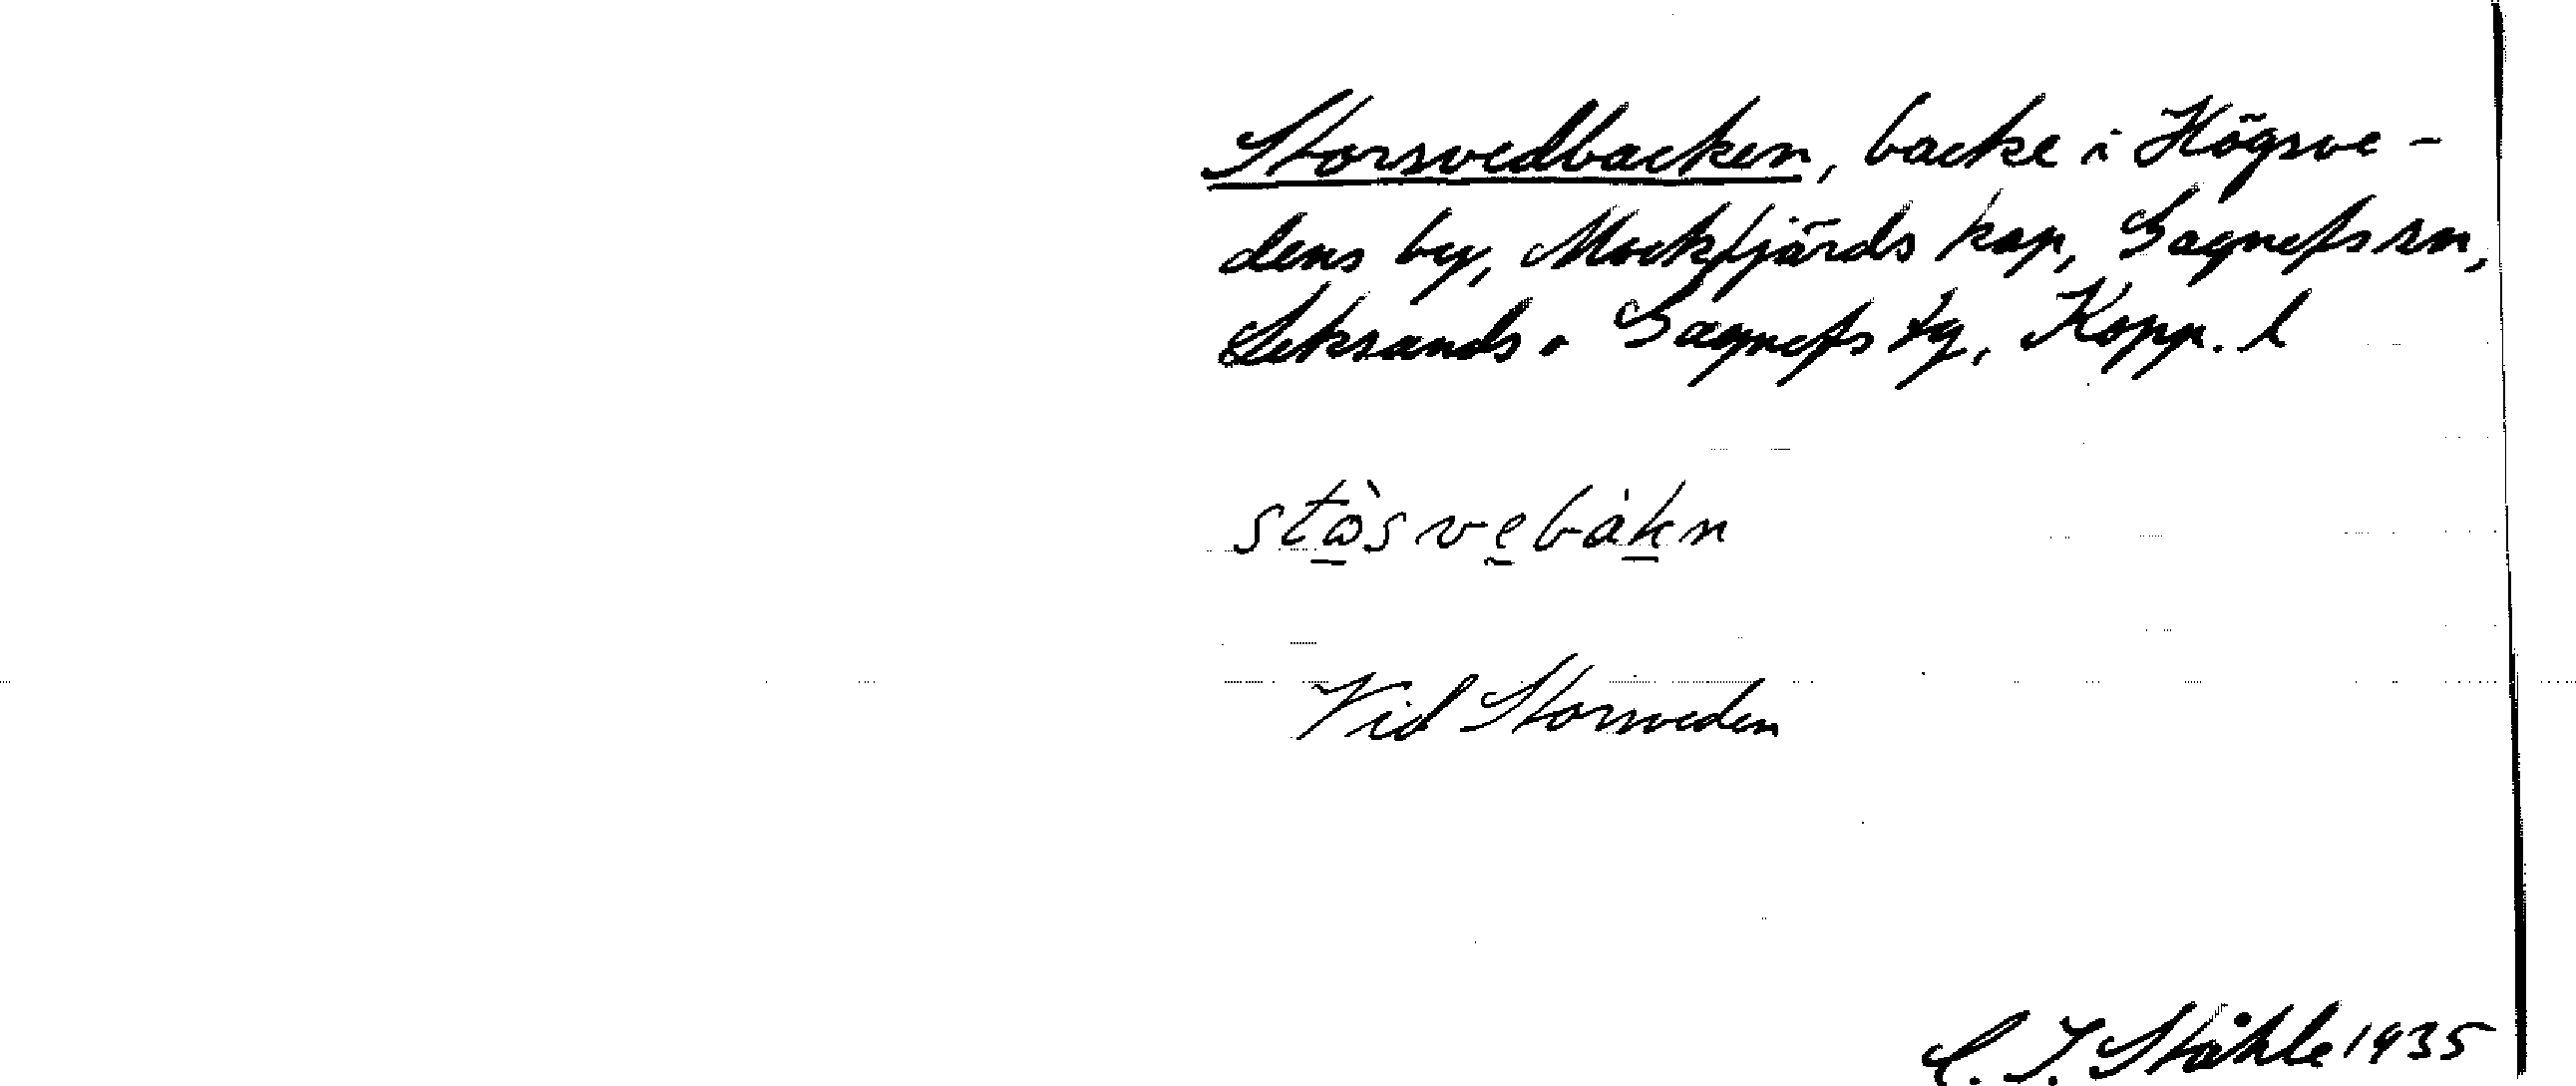 Storsvedbacken, backe i Högsve-
dens by, Mockfjärds kap, Gagnefs sn,
Leksands o Gagnefs tg, Kopp. l
stò̠sve̠bàk̠n
Vid Storsveden
C. I. Ståhle 1935